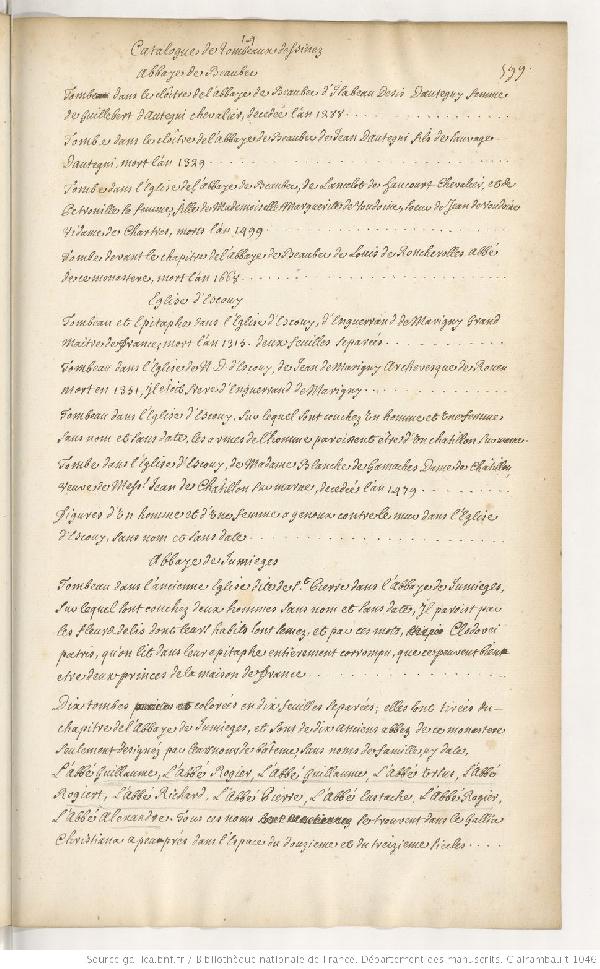 14
Catalogue de Tombeaux dessinez
Abbaye de Beaubec
599.
Tombeau dans le cloitre de l'abbaye de Beaubec d'Isabeau Denis Dautegny femme
de Guillebert d'autegni chevalier, decedée l'an 1388
Tombe dans le cloitre de l'Abbaye de Beaubec de Jean Dautegni fils de Sauvage
Dautegni, mort l'an 1329
Tombe dans l'Eglise de l'Abbaye de Beaubec, de Lancelot de Haucourt Chevalier, et de
Petronille sa femme, filles de Mademoiselle Marguerite de Vendome, soeur de Jean de Vendome
Vidame de Chartres, morts l'an 1499
Tombe devant le chapitre de l'abbaye de Beaubec de Louis de Roncherolles Abbé
de ce monastere, mort l'an 1668
Eglise d'Escouy
Tombeau et Epitaphe dans l'Eglise d'Escouy, d'Enguerrand de Marigny Grand
Maitre de france, mort l'an 1315. deux feuilles separées
Tombeau dans l'Eglise de N. D. d'Escouy, de Jean de Marigny Archevesque de Rouen
mort en 1351, il étoit frere d'Enguerrand de Marigny
Tombeau dans l'Eglise d'Escouy, sur lequel sont couchez un homme et une femme
sans nom et sans date, les armes de l'homme paroissent être d'un chatillon sur marne
Tombe dans l'Eglise d'Escouy, de Madame Blanche de Gamaches Dame de Chatillon,
veuve de Mess.r Jean de Chatillon sur marne, decedée l'an 1479
figures d'un homme et d'une femme a genoux contre le mur dans l'Eglise
d'Escouy, sans nom et sans date
Abbaye de Jumieges
Tombeau dans l'ancienne Eglise dite de S.t Pierre dans l'Abbaye de Jumieges,
sur lequel sont couchez deux hommes sans nom et sans date, Il paroist par
les fleurs de lis dont leurs habits sont semez, et par ces mots, Clodovei
patris, qu'on lit dans leur epitaphe entierement corrompu, que ce peuvent bien
etre deux princes de la maison de france
Dix tombes colorées en dix feuilles separées; elles sont tirées du
chapitre de l'Abbaye de Jumieges, et sont de dix anciens abbez de ce monastere
seulement designéz par leurs noms de bateme sans noms de famille, ny date,
L'abbé Guillaume, L'Abbé Rogier, L'Abbé Guillaume, L'Abbé, L'abbé
Rogier, L'Abbé Richard, L'Abbé Pierre, L'Abbé Eustache, L'Abbé Rogier,
L'Abbé Alexandre. Tous ces noms se trouvent dans le Gallia
Christiana a peu près dans l'Espace du douzieme et du treizieme siecles
Source gallica.bnf.fr / Bibliothèque nationale de France. Département des manuscrits. Clairambault 1046